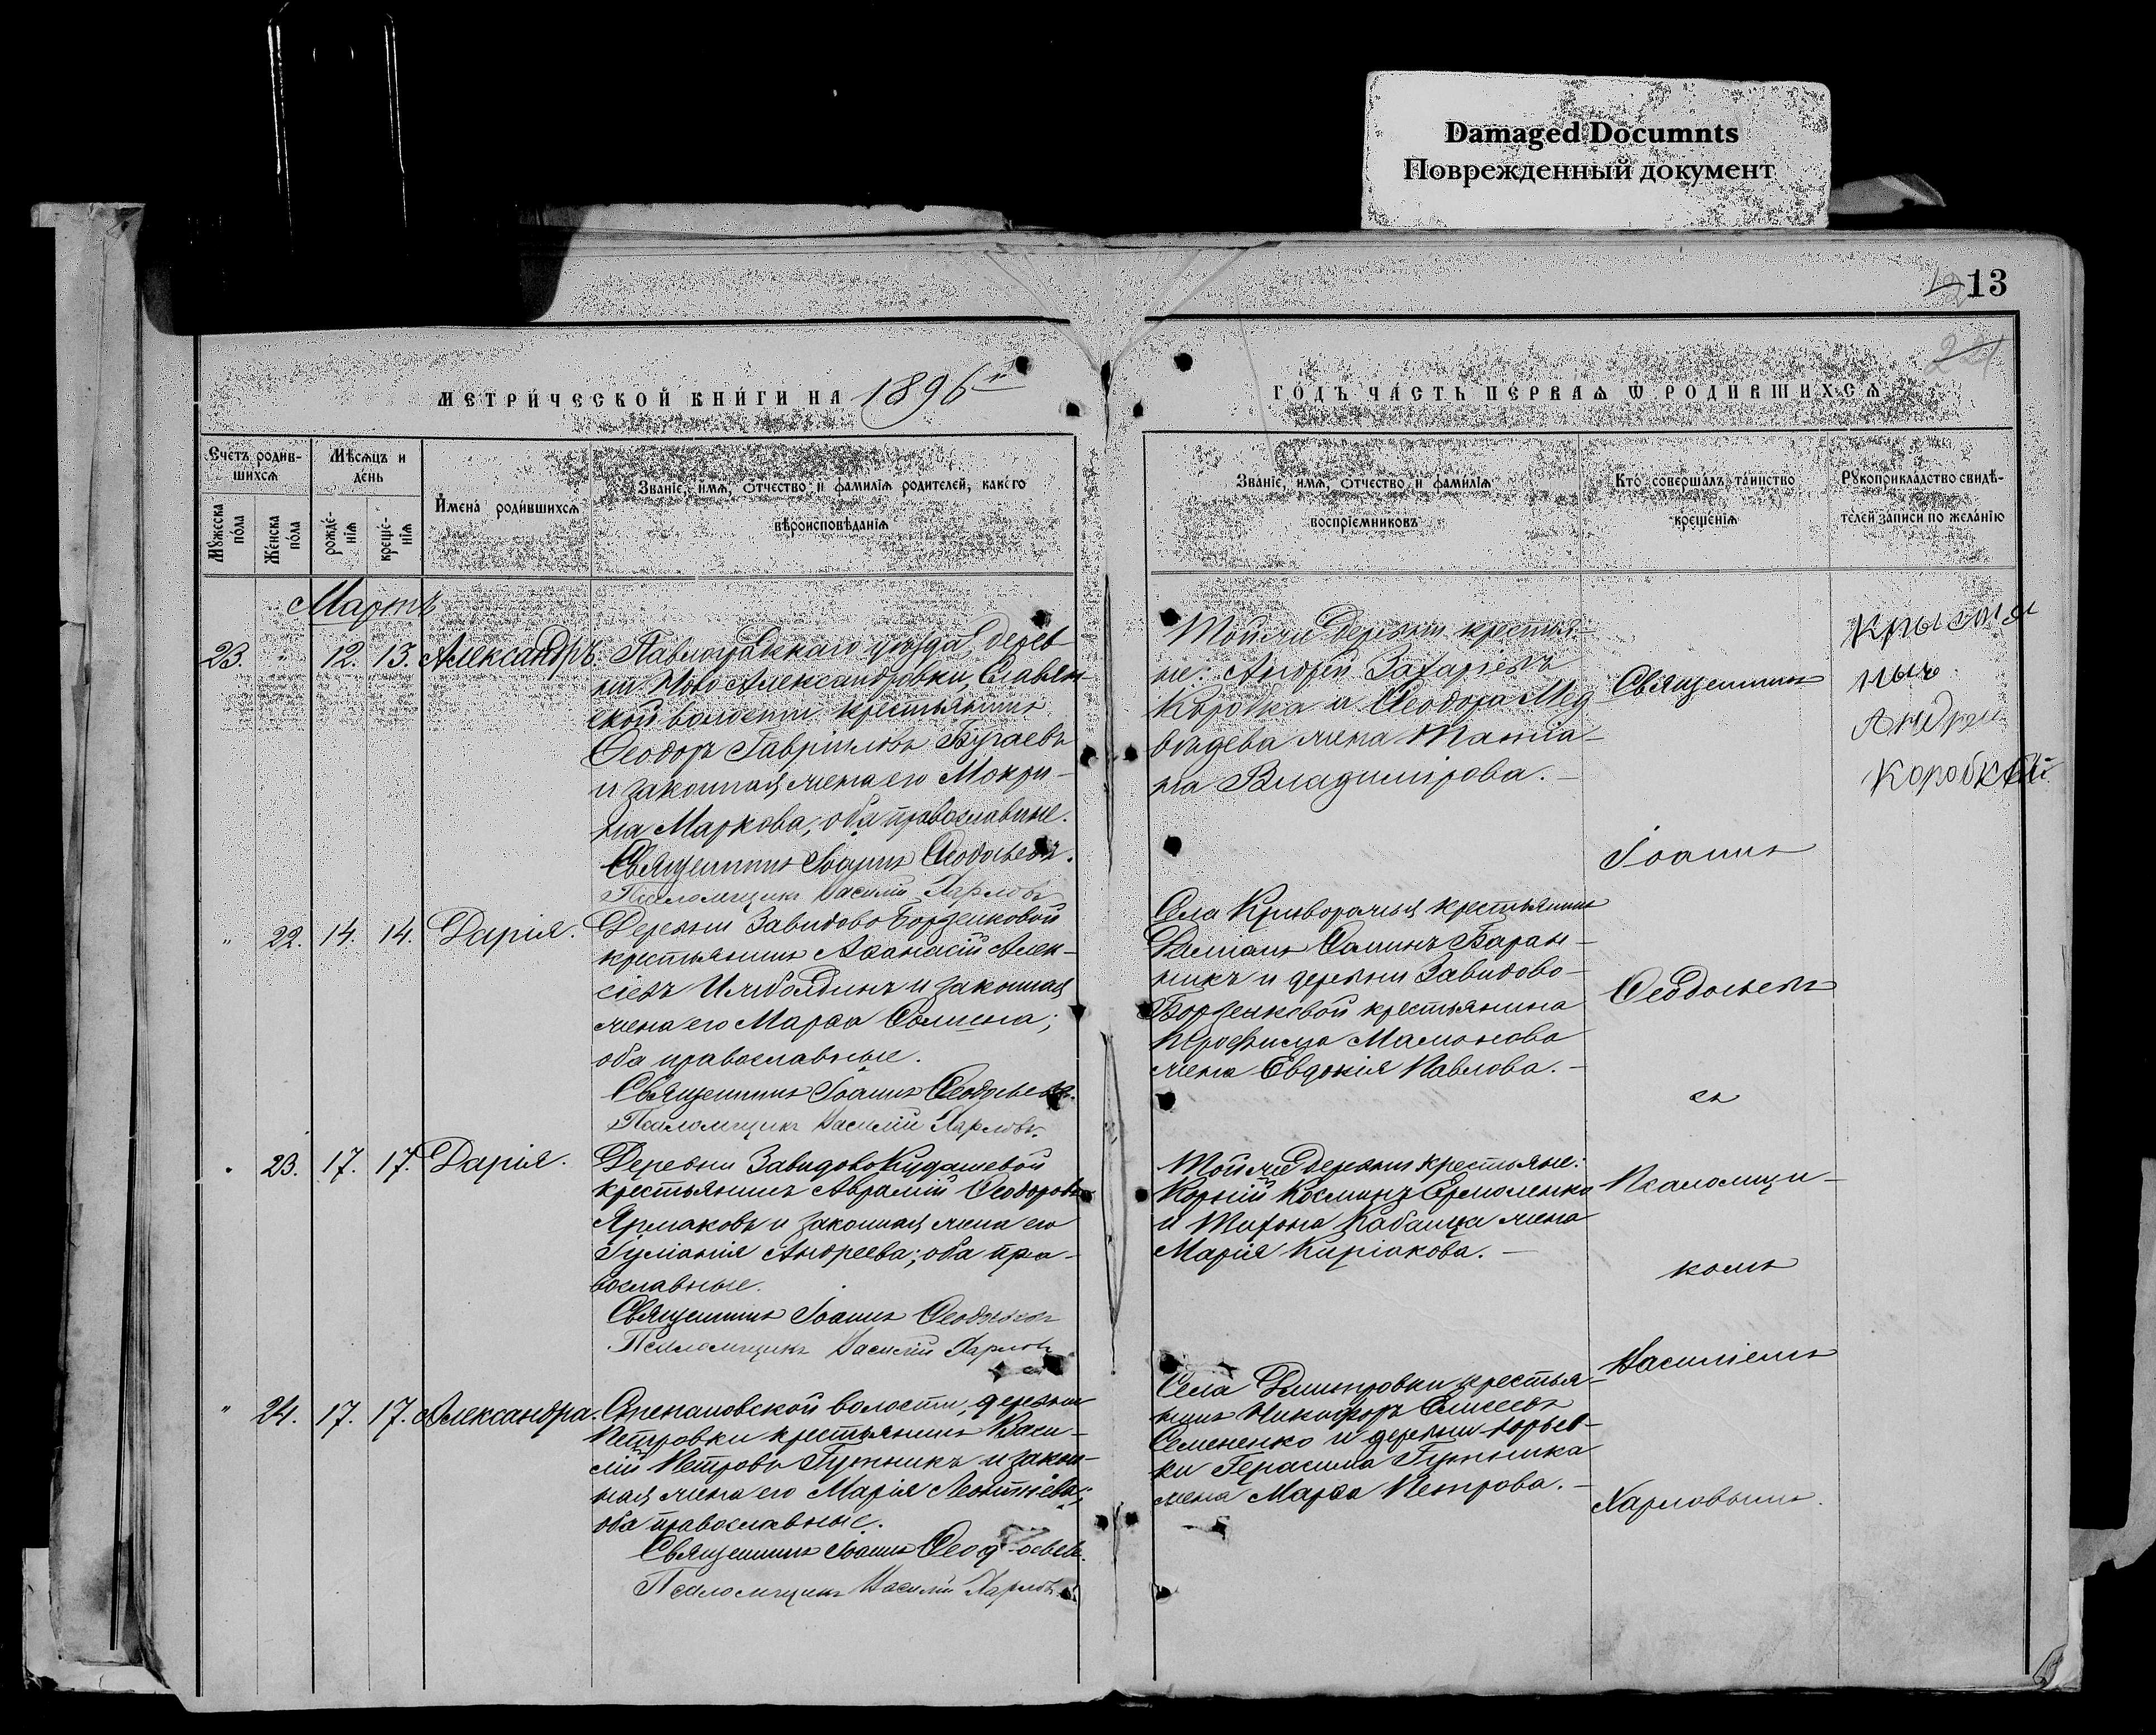 Damaged Documnts
Поврежденный документ
13
МЕТРИЧЕСКОЙ КНИГИ НА 1896й
ГОДЪ ЧАСТЬ ПЕРВАѦ Ѿ РОДИВШИХСѦ
Счетъ родив-
шихсѧ
Мѣсѧцъ и
день
Мужеска
пола
Женска
пола
рожде-
нїѧ
креще-
нїѧ
Имена родившихсѧ
Званїе, имѧ, отчество, и фамилїѧ родителей, какого
вѣроисповѣданїѧ
Званїе, имѧ, отчество, и фамилїѧ
воспрїемниковъ
Кто совершалъ таинство
крещенїѧ
Рукоприкладство свидѣ-
телей записи по желанїю
Мартъ
23. " 12. 13. Александръ. Павлоградскаго уѣзда, дерев
ни Ново Александровки, Славян
ской волости крестьянинъ
Ѳеодоръ Гавріиловъ Бугаевъ
и законная жена его Мокри-
на Маркова; оба православные.
Священникъ Іоаннъ Ѳеодосьевъ.
Псаломщикъ Василій Харловъ
Той же деревни крестья-
не: Андрей Захаріевъ
Коробка и Ѳеодора Мед
вѣдева жена Татіа-
на Владимірова.-
Крыстя
ныч
Андрей
Коробкай
" 22. 14. 14. Дарія. Деревни Завидово Борзенковой
крестьянинъ Аѳанасій Алек-
сіевъ и законная
жена его Марѳа Ѳомина;
оба православные.
Священникъ Іоаннъ Ѳеодосьевъ.
Псаломщикъ Василій Харловъ.
Села Криворожья крестьянинъ
Даміанъ Ѳоминъ Баран-
никъ и деревни Завидово-
Борзенковой крестьянина
Трофима Мамонова
жена Евдокія Павлова.-
" 23. 17. 17. Дарія. Деревни Завидово Кудашевой
крестьянинъ Аврамій Ѳеодоровъ
Ярмаковъ и законная жена его
Іуліанія Андреева; оба пра-
вославные.
Священникъ Іоаннъ Ѳеодосьевъ
Псаломщикъ Василій Харловъ
Той же деревни крестьяне:
Корній Космин Ермоленко
и Тихона Кабанца жена
Марія Киріакова.-
" 24. 17. 17. Александра. Степановской волости, деревни
Петровки крестьянинъ Васи-
лій Петровъ Гутникъ и закон-
ная жена его Марія Леонтіева;
оба православные.
Священникъ Іоаннъ Ѳеодосьевъ.
Псаломщикъ Василій Харловъ.
Села Дмитровки крестья-
нинъ Никифоръ Елисеевъ
Семененко и деревни Юрьев-
ки Герасима Гутника
жена Марѳа Петрова.-
Священникъ
Іоаннъ
Ѳеодосьевъ
съ
Псаломщи-
комъ
Василіемъ
Харловымъ.